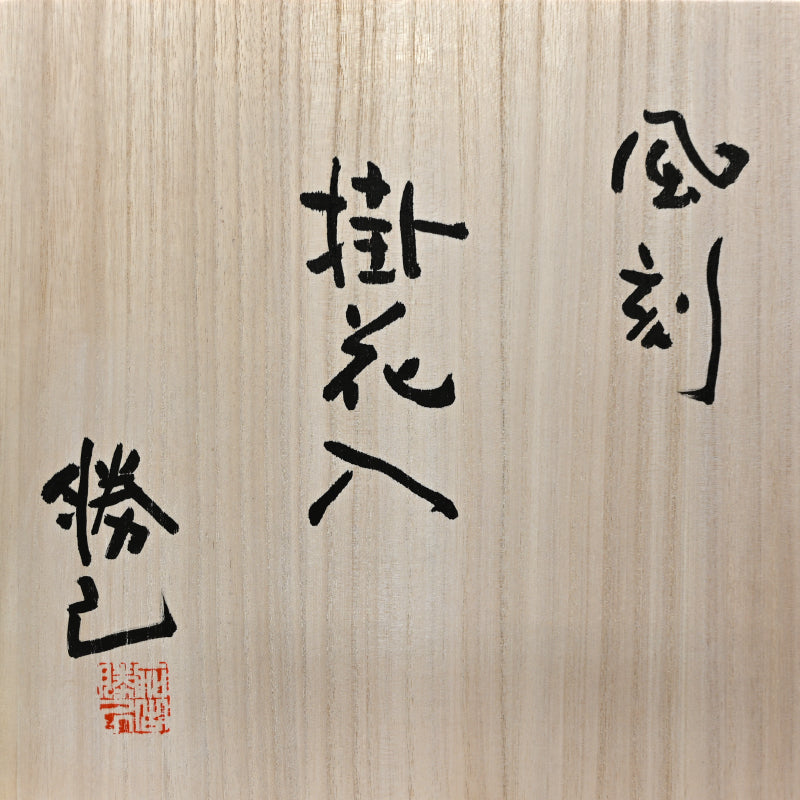 風刻
掛花入
勝己